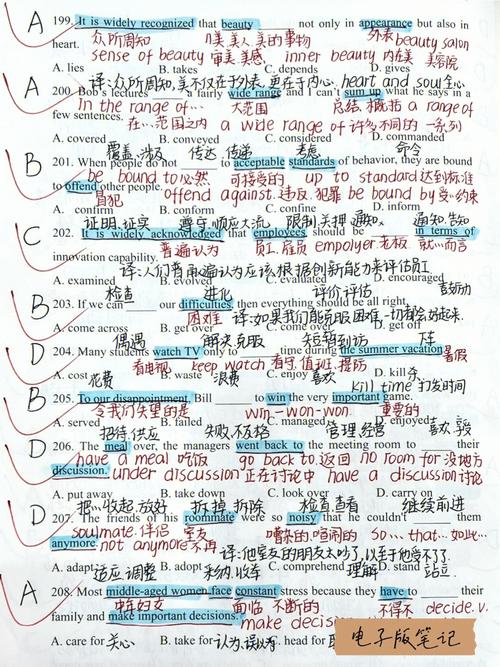 A 199. It is widely recognized that beauty not only in appearance but also in
heart. 众所周知 n美.美人.美的事物 外表 beauty salon
sense of beauty 审美.美感. inner beauty 内在美 美容院
A. lies B. takes C. depends D. gives
译:众所周知,美不仅在于外表,更在于内心. heart and soul 全心
A 200. Bob's lectures a fairly wide range and I can't sum up what he says in a
in the range of… 大范围 总结.概括 a range of
few sentences. 在…范围之内 a wide range of 许多不同的 一系列
A. covered B. conveyed C. considered D. commanded
覆盖.涉及 传达.传递 考虑 命令
B 201. When people do not to acceptable standards of behavior, they are bound
be bound to 必然 可接受的 up to standard 达到标准
to offend other people.
冒犯 offend against.违反.犯罪 be bound by 受…约束
A. confirm B. conform C. confine D. inform
证明.证实 遵守.顺应大流. 限制.关押 通知.告知
C 202. It is widely acknowledged that employees should be in terms of
普遍认为 员工.雇员 empolyer.老板 就…而言
innovation capability.
译:人们普遍认为应该根据创新能力来评估员工
A. examined B. evolved C. evaluated D. encouraged
检查 进化 评价评估 鼓励
B 203. If we can our difficulties, then everything should be all right.
困难 译:如果我们能克服困难,一切都会好起来.
A. come across B. get over C. come over D. get off
偶遇 解决.克服 短暂到访 下车
D 204. Many students watch TV only to time during the summer vacation.
看电视 keep watch 看守.值班.提防 暑假
A. cost B. waste C. enjoy D. kill
花费 浪费 喜欢 kill time 打发时间
B 205. To our disappointment, Bill to win the very important game.
令我们失望的是 win-won-won. 重要的
A. served B. failed C. managed D. enjoyed
招待.供应 失败.不及格 管理.经营 喜欢.
D 206. The meal over, the managers went back to the meeting room to their
have a meal 吃饭 go back to.返回 no room for 没地方
discussion. under discussion 正在讨论中 have a discussion 讨论
A. put away B. take down C. look over D. carry on
把…收起.放好 拆掉.拆除 检查.查看 继续前进
D 207. The friends of his roommate were so noisy that he couldn't them
soulmate.伴侣 室友 嘈杂的.喧闹的 so…that…如此…
anymore. not anymore 不再
译:他室友的朋友太吵了,以至于他受不了.
A. adapt B. adopt C. comprehend D. stand
适应.调整 采纳.收养 理解 站立.
A 208. Most middle-aged women face constant stress because they have to their
中年妇女 面临 不断的 不得不 decide.v.
family and make important decisions. make decision
A. care for B. take for head for
关心 认为.误以为.
电子版笔记